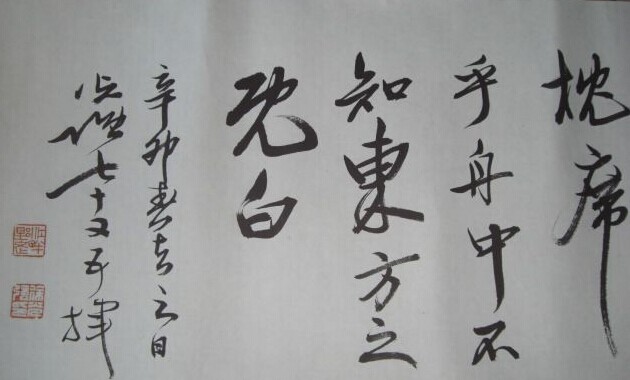 枕席
乎舟中不
知東方之
既白
辛卯春吉之日
七十又五